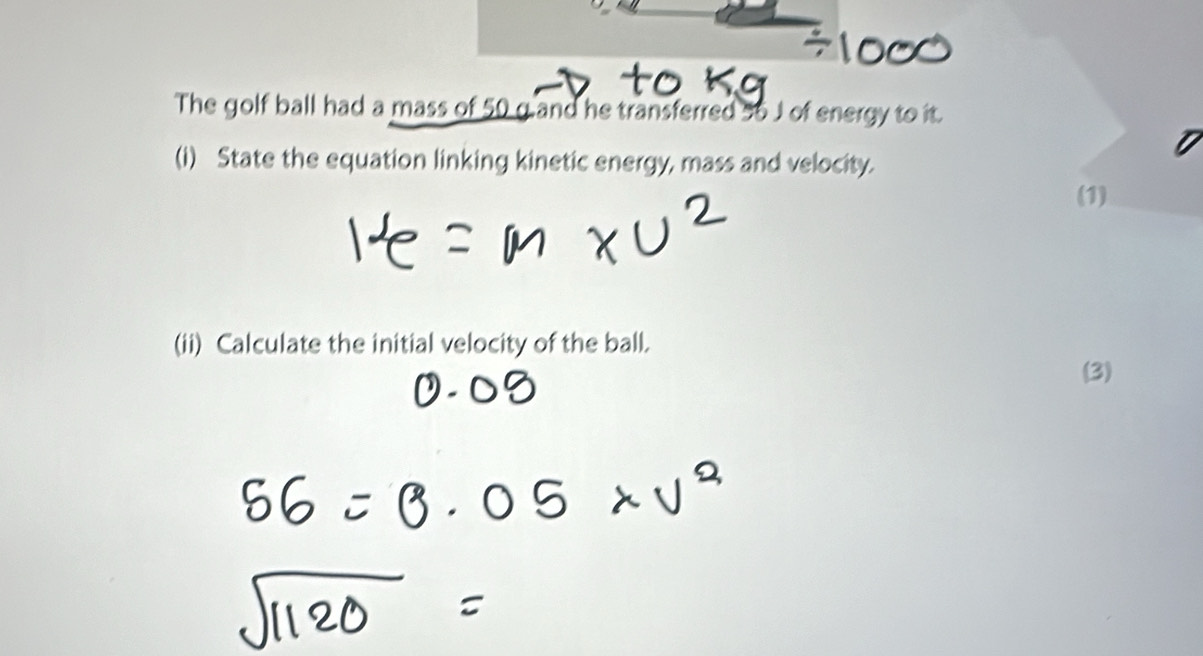 ÷1000
→ to Kg
The golf ball had a mass of 50 g and he transferred 56 J of energy to it.
(i) State the equation linking kinetic energy, mass and velocity.
(1)
Ke = m × v²
(ii) Calculate the initial velocity of the ball.
(3)
0.05
56 = 0.05 × v²
√1120 =